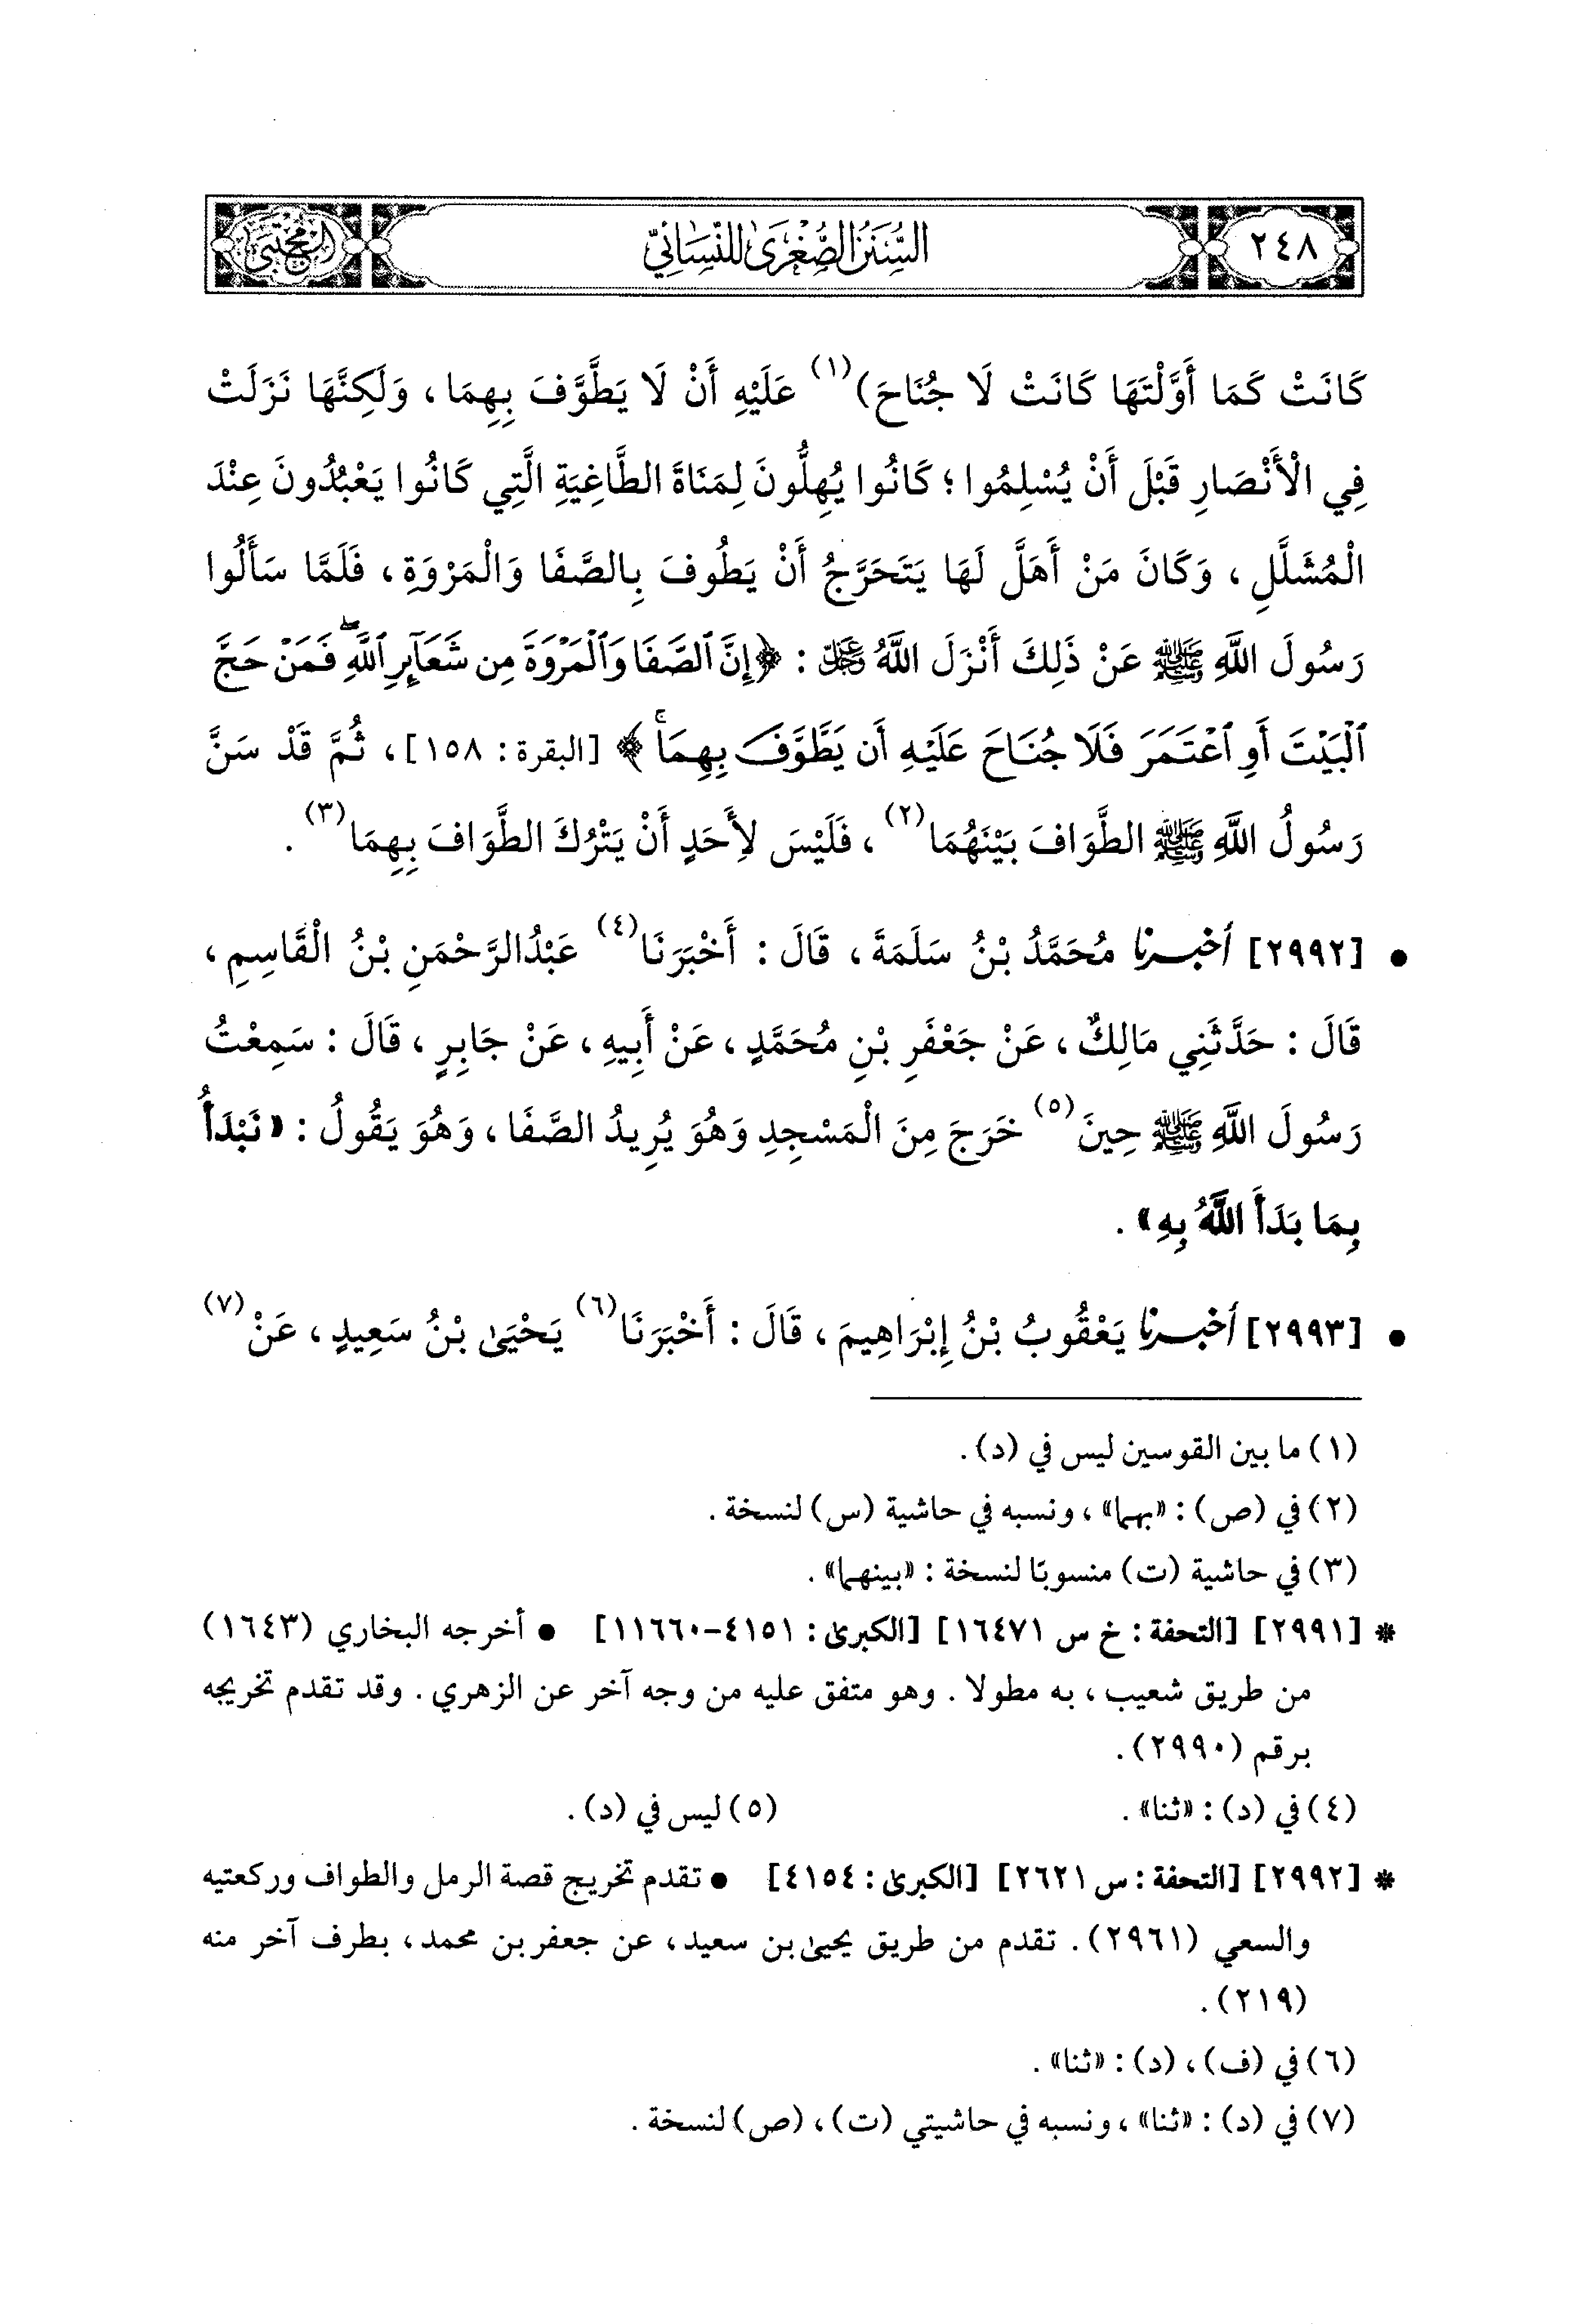 ٢٤٨
السُّنَنُ الصُّغْرَىٰ لِلنَّسَائِيِّ
المجتبى
كَانَتْ كَمَا أَوَّلْتَهَا كَانَتْ لَا جُنَاحَ)(١) عَلَيْهِ أَنْ لَا يَطَّوَّفَ بِهِمَا، وَلَكِنَّهَا نَزَلَتْ
فِي الْأَنْصَارِ قَبْلَ أَنْ يُسْلِمُوا؛ كَانُوا يُهِلُّونَ لِمَنَاةَ الطَّاغِيَةِ الَّتِي كَانُوا يَعْبُدُونَ عِنْدَ
الْمُشَلَّلِ، وَكَانَ مَنْ أَهَلَّ لَهَا يَتَحَرَّجُ أَنْ يَطُوفَ بِالصَّفَا وَالْمَرْوَةِ، فَلَمَّا سَأَلُوا
رَسُولَ اللَّهِ ﷺ عَنْ ذَلِكَ أَنْزَلَ اللَّهُ عَزَّ وَجَلَّ: ﴿إِنَّ ٱلصَّفَا وَٱلْمَرْوَةَ مِن شَعَآئِرِ ٱللَّهِۖ فَمَنْ حَجَّ
ٱلْبَيْتَ أَوِ ٱعْتَمَرَ فَلَا جُنَاحَ عَلَيْهِ أَن يَطَّوَّفَ بِهِمَاۚ﴾ [البقرة: ١٥٨]، ثُمَّ قَدْ سَنَّ
رَسُولُ اللَّهِ ﷺ الطَّوَافَ بَيْنَهُمَا(٢)، فَلَيْسَ لِأَحَدٍ أَنْ يَتْرُكَ الطَّوَافَ بِهِمَا(٣).
• [٢٩٩٢] أخبرنا مُحَمَّدُ بْنُ سَلَمَةَ، قَالَ: أَخْبَرَنَا(٤) عَبْدُالرَّحْمَنِ بْنُ الْقَاسِمِ،
قَالَ: حَدَّثَنِي مَالِكٌ، عَنْ جَعْفَرِ بْنِ مُحَمَّدٍ، عَنْ أَبِيهِ، عَنْ جَابِرٍ، قَالَ: سَمِعْتُ
رَسُولَ اللَّهِ ﷺ حِينَ(٥) خَرَجَ مِنَ الْمَسْجِدِ وَهُوَ يُرِيدُ الصَّفَا، وَهُوَ يَقُولُ: «نَبْدَأُ
بِمَا بَدَأَ اللَّهُ بِهِ».
• [٢٩٩٣] أخبرنا يَعْقُوبُ بْنُ إِبْرَاهِيمَ، قَالَ: أَخْبَرَنَا(٦) يَحْيَىٰ بْنُ سَعِيدٍ، عَنْ(٧)
(١) ما بين القوسين ليس في (د).
(٢) في (ص): «بهما»، ونسبه في حاشية (س) لنسخة.
(٣) في حاشية (ت) منسوبًا لنسخة: «بينهما».
* [٢٩٩١] [التحفة: خ س ١٦٤٧١] [الكبرىٰ: ٤١٥١-١١٦٦٠] • أخرجه البخاري (١٦٤٣)
من طريق شعيب، به مطولا. وهو متفق عليه من وجه آخر عن الزهري. وقد تقدم تخريجه
برقم (٢٩٩٠).
(٤) في (د): «ثنا». (٥) ليس في (د).
* [٢٩٩٢] [التحفة: س ٢٦٢١] [الكبرىٰ: ٤١٥٤] • تقدم تخريج قصة الرمل والطواف وركعتيه
والسعي (٢٩٦١). تقدم من طريق يحيىٰ بن سعيد، عن جعفر بن محمد، بطرف آخر منه
(٢١٩).
(٦) في (ف)، (د): «ثنا».
(٧) في (د): «ثنا»، ونسبه في حاشيتي (ت)، (ص) لنسخة.